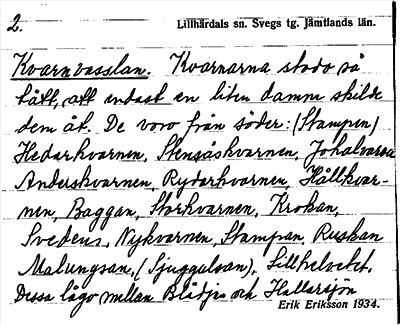 2.
Lillhärdals sn. Svegs tg. Jämtlands län.
Kvarnvasslan. Kvarnarna stodo så
tätt, att endast en liten damm skilde
dem åt. De voro från söder: (Stampen)
Hedarkvarnen, Stensåskvarnen, Johalvarsa
Anderskvarnen, Rydarkvarnen, Hållkvar-
nen, Baggan, Storkvarnen, Krokan,
Svedens, Nykvarnen, Stampan, Ruskan
Malungsan, (Sjuggulsan), Lillhelvetet.
Dessa lågo mellan Blädjis och Hallarsjon
Erik Eriksson 1934.